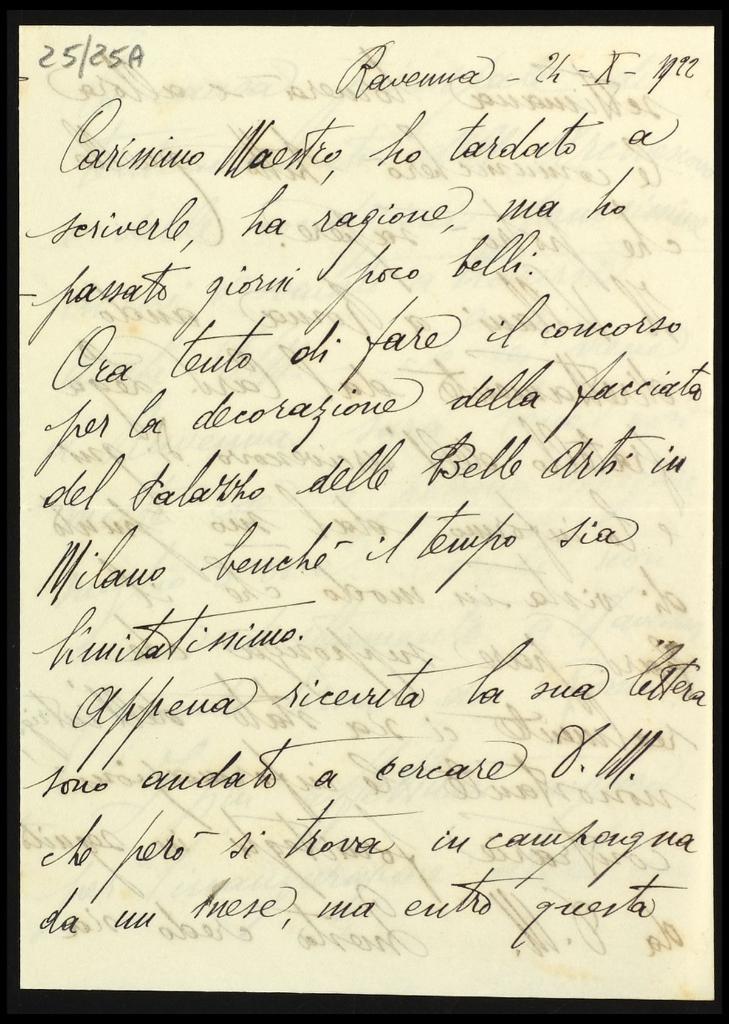 25/25A
Ravenna - 24 - X - 1922
Carissimo Maestro, ho tardato a
scriverle, ha ragione, ma ho
passato giorni poco belli.
Ora tento di fare il concorso
per la decorazione della facciata
del Palazzo delle Belle Arti in
Milano benchè il tempo sia
limitatissimo.
Appena ricevuta la sua lettera
sono andato a cercare V. M.
che però si trova in campagna
da un mese, ma entro questa